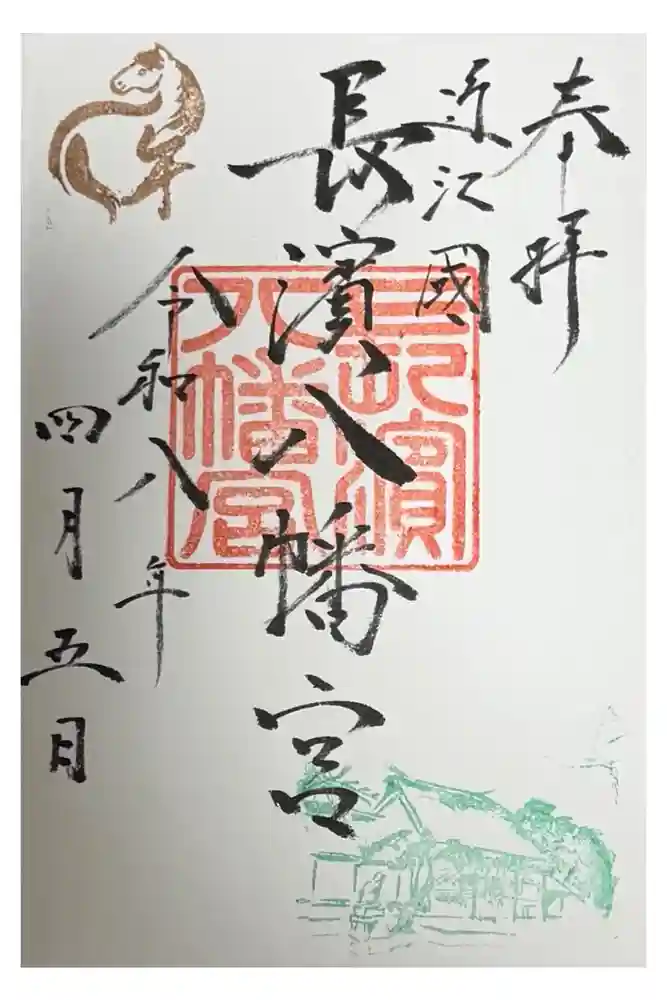 奉拝
近江國
長濱八幡宮
長濱
八幡宮
令和八年
四月五日